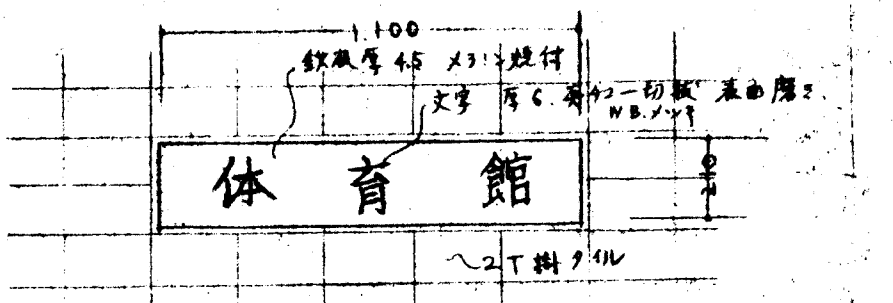 1.100
鉄板厚 4.5 メラミン焼付
文字 厚 6. 表面磨き
N B.メッキ
体 育 館
210
2丁掛タイル